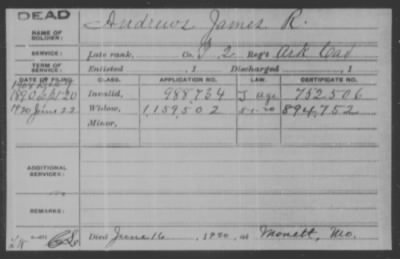 DEAD
NAME OF SOLDIER: Andrews James R.
SERVICE: Late rank, Co. 2 Reg't Ark Cav
TERM OF SERVICE: Enlisted , 1 Discharged , 1
DATE OF FILING. CLASS. APPLICATION NO. LAW. CERTIFICATE NO.
1890 Sept 20 Invalid, 988,734 J Age 752506
1920 June 22 Widow, 1,159,502 894,752
Minor,
ADDITIONAL SERVICES:
REMARKS:
Died June 16, 1920, at Monett, Mo.